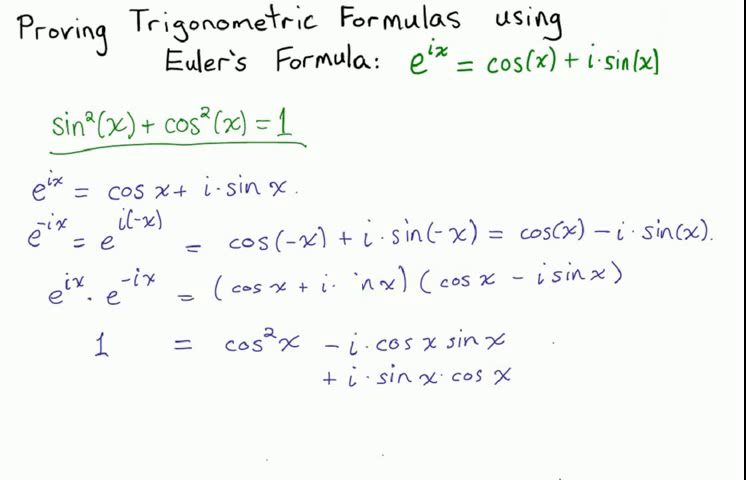 Proving Trigonometric Formulas using
Euler's Formula: e^{ix} = cos(x) + i·sin(x)
sin²(x) + cos²(x) = 1
e^{ix} = cos x + i·sin x.
e^{-ix} = e^{i(-x)} = cos(-x) + i·sin(-x) = cos(x) - i·sin(x).
e^{ix}·e^{-ix} = (cos x + i· in x)(cos x - i sin x)
1 = cos²x - i·cos x sin x
+ i·sin x·cos x